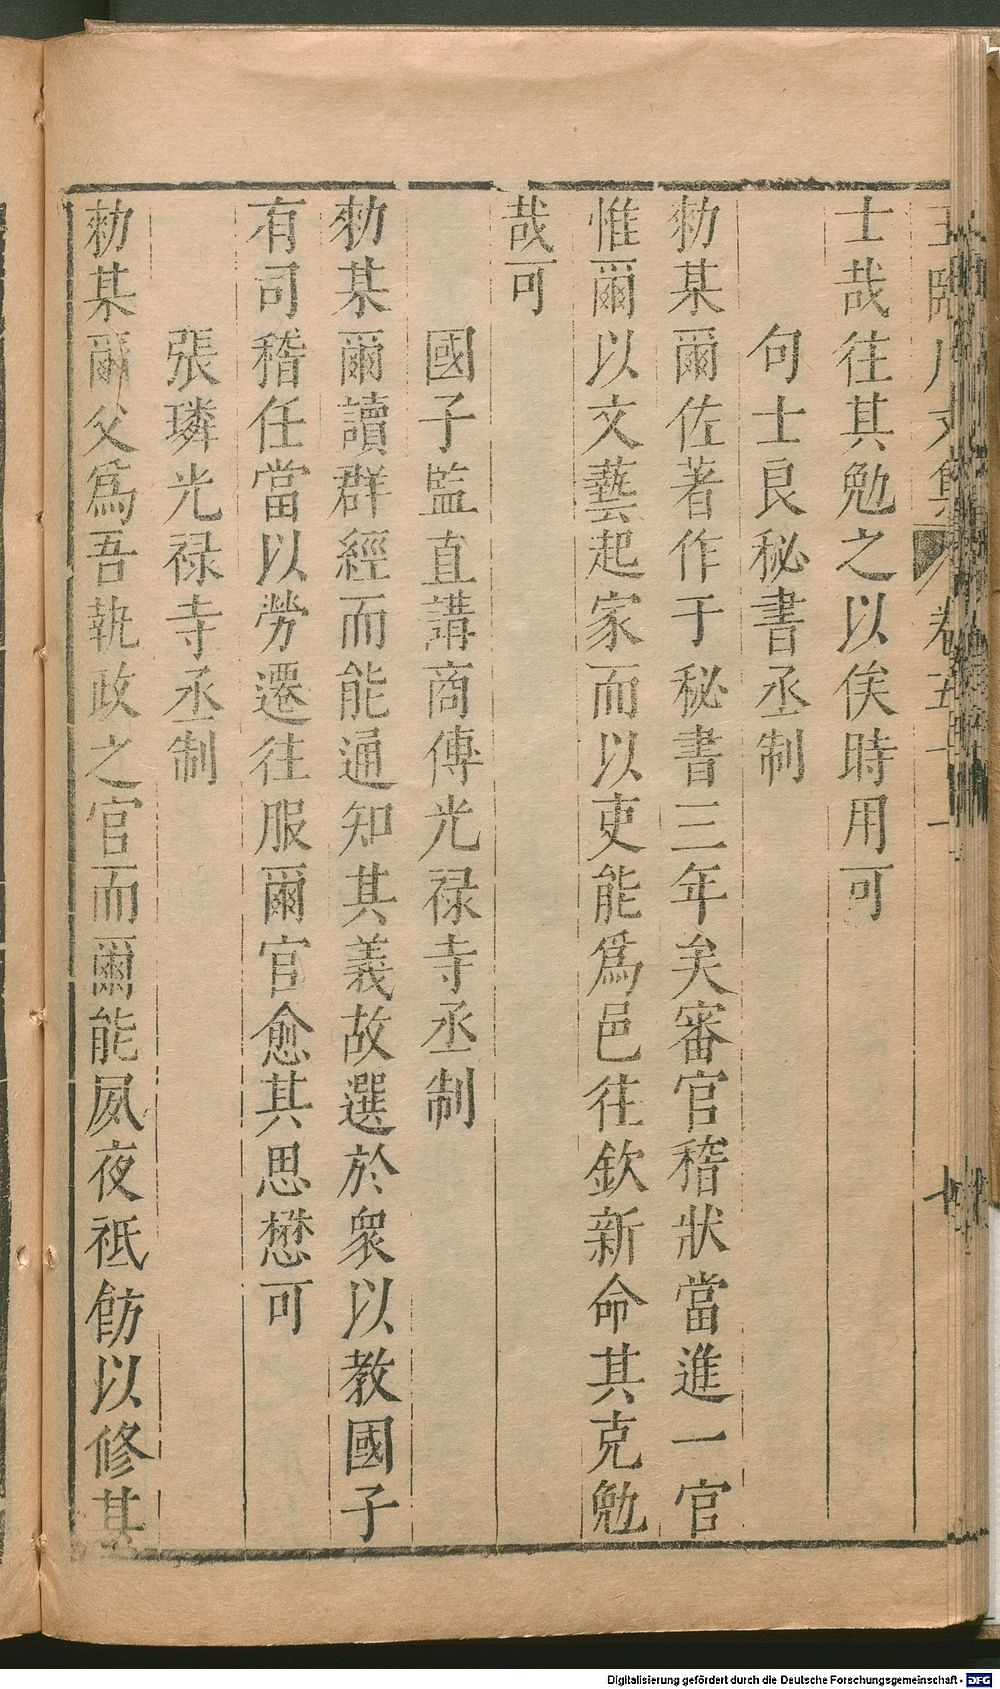 王臨川文集 卷五十一 十
士哉往其勉之以俟時用可
句士良秘書丞制
勑某爾佐著作于秘書三年矣審官稽狀當進一官
惟爾以文藝起家而以吏能爲邑往欽新命其克勉
哉可
國子監直講商傅光禄寺丞制
勑某爾讀群經而能通知其義故選於衆以教國子
有司稽任當以勞遷往服爾官愈其思懋可
張璘光禄寺丞制
勑某爾父爲吾執政之官而爾能夙夜祗飭以修其
Digitalisierung gefördert durch die Deutsche Forschungsgemeinschaft - DFG